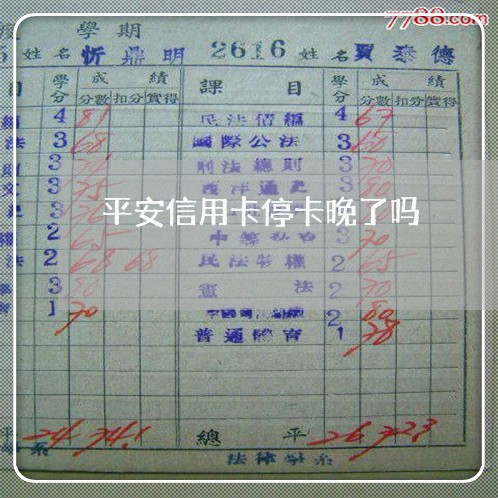 7788.com
學期
姓名 忻鼎明 2616 姓名 賈泰德
目 學分 成績 課目 學分 成績
分數 扣分 實得 分數 扣分 實得
4 81 民法債編 4 67
法 3 68 國際公法 3 60
3 刑法總則 3 70
3 75 西洋通史 3 80
平安信用卡停卡晚了吗
2 65 3 70
法 2 68 68 民法物權 2 65
3 80 憲法 2 70
1 70 2 80
普通體育 1 78
平 24 74.1 總平 26 72.3
系 法律學系